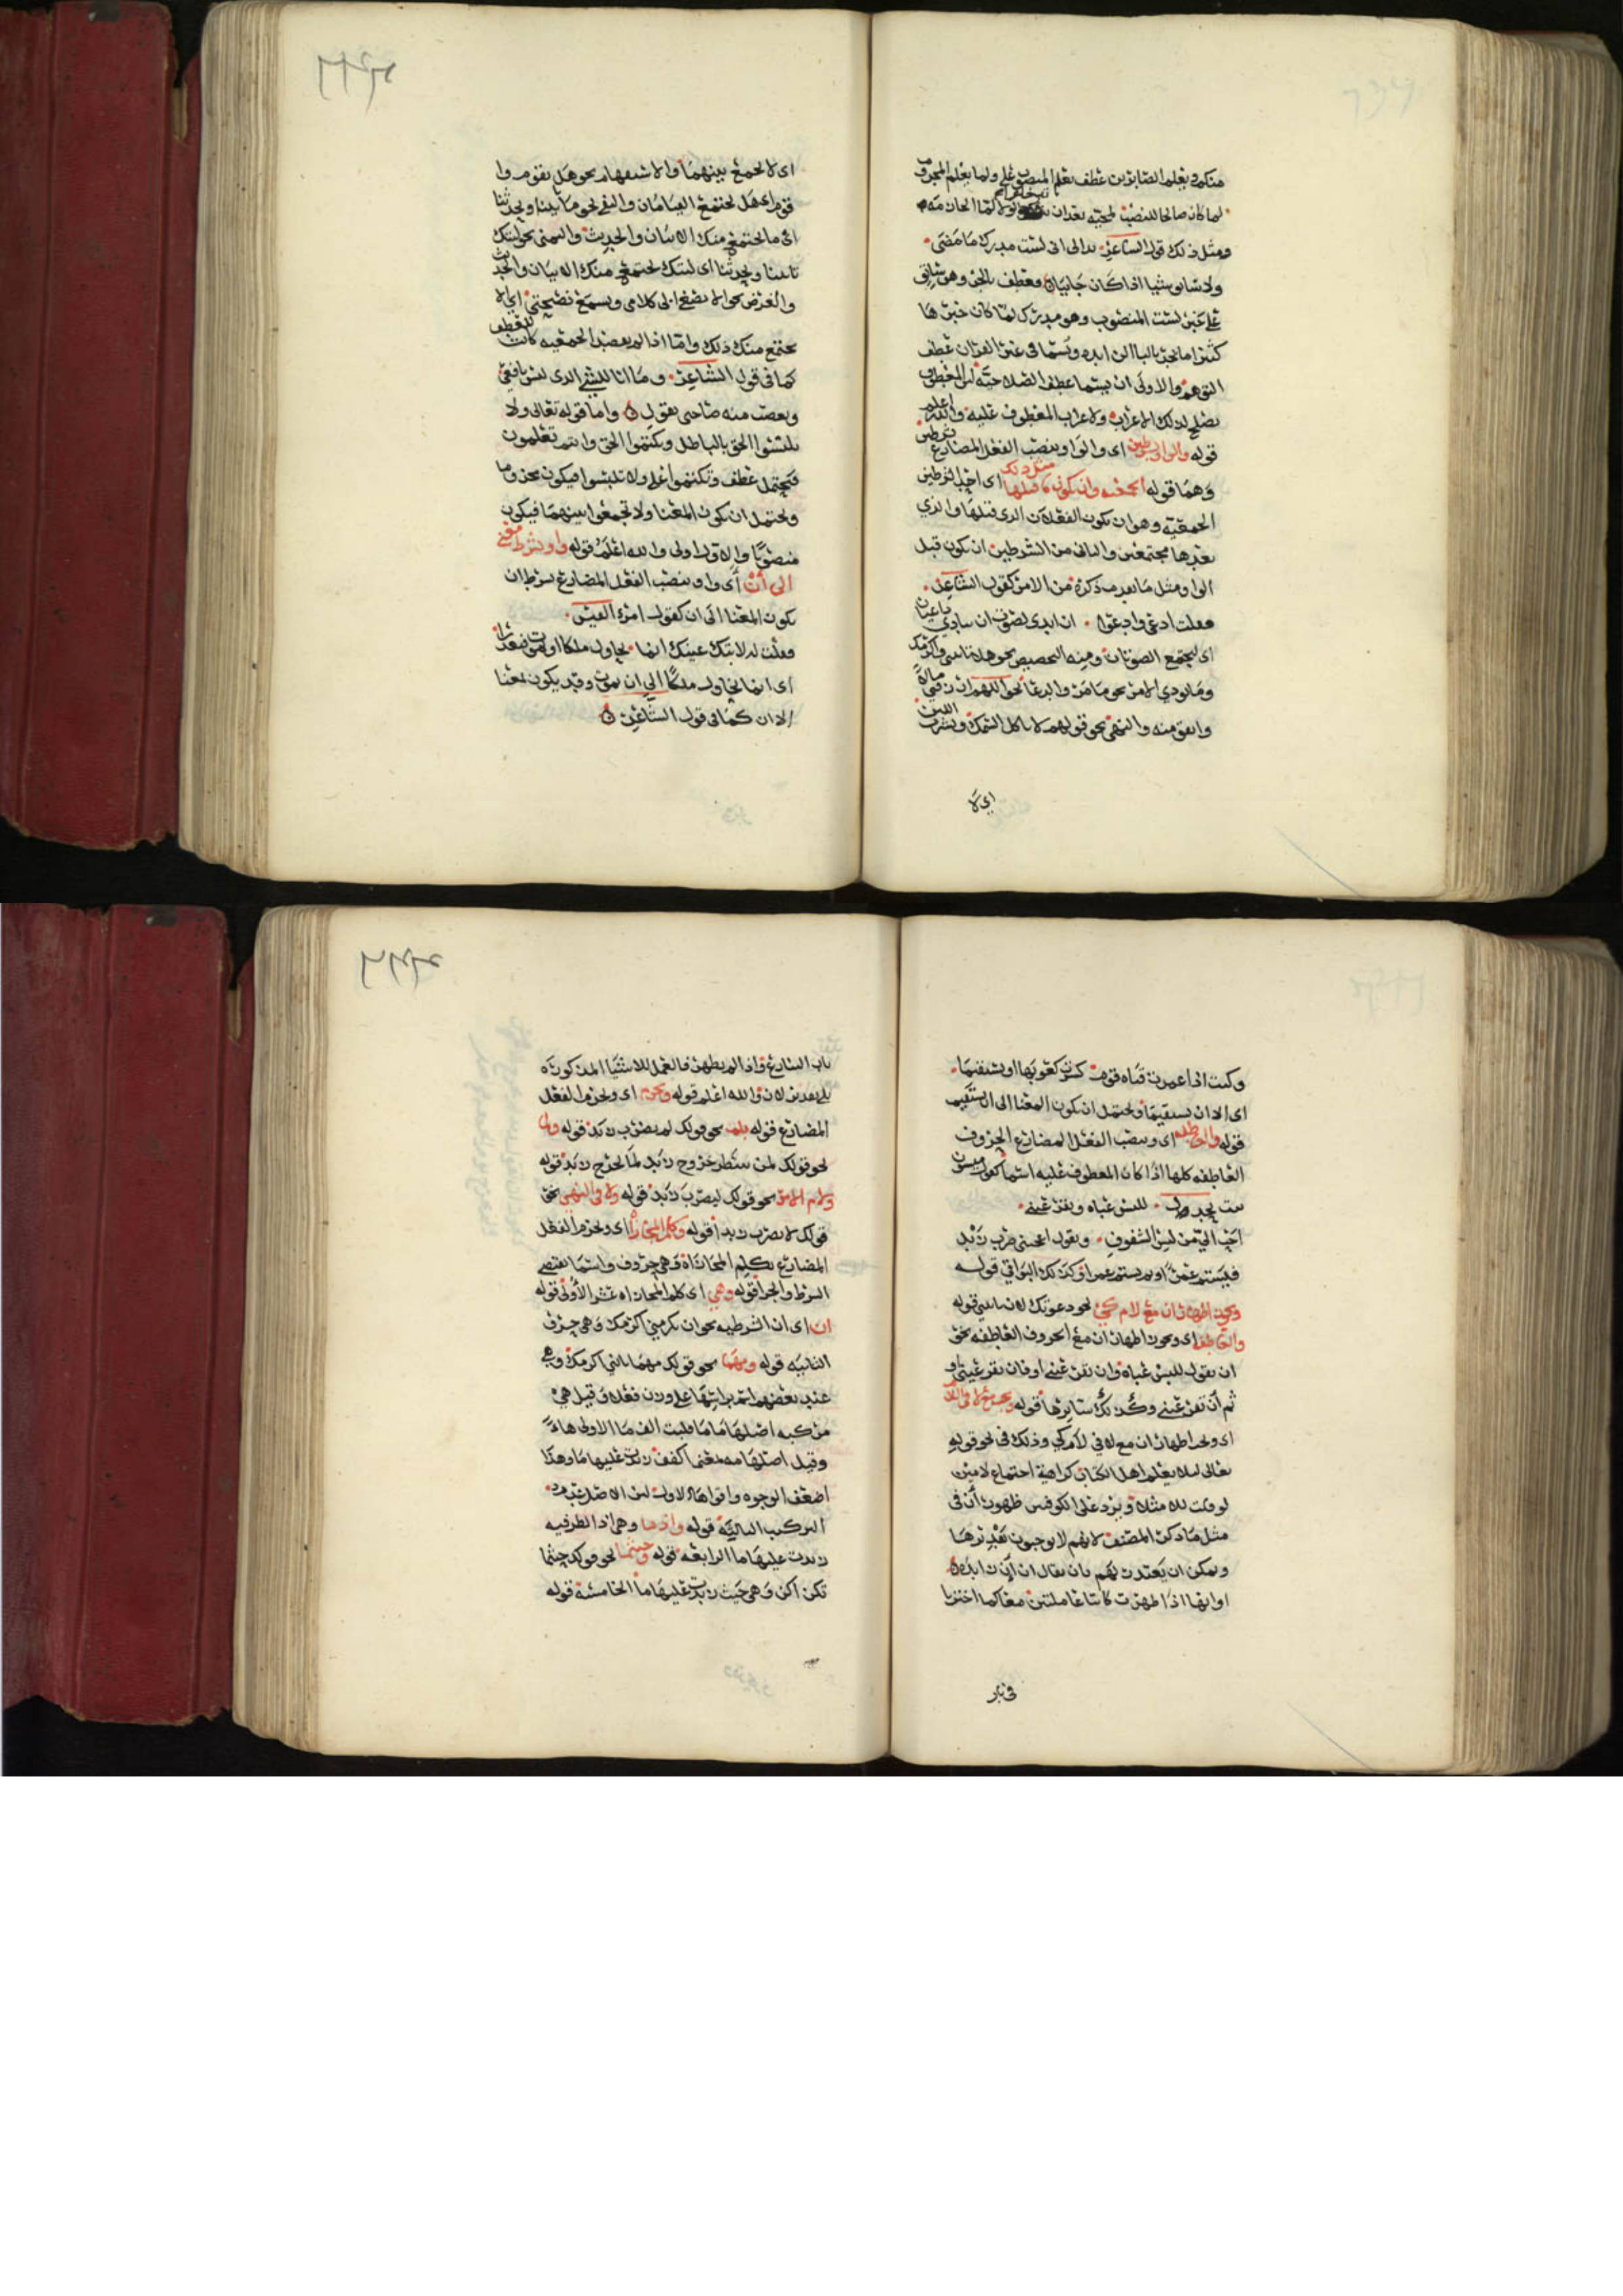 منكم ويعلم الصابرين عطف يعلم المنصوب على ولما يعلم المجزوم
لما كان صالحا للنصب لمجيئه بعد ان
ومثل ذلك قول الشاعر بدا لي اني لست مدرك ما مضى
ولا سابق شيئا اذا كان جائيا فعطف بالجر وهو سابق
على خبر لست المنصوب وهو مدرك لما كان خبرها
كثيرا ما يجر بالبا ابدا ويسما في غير القران عطف
التوهم والاولى ان يسما عطف الصلاحية لان المعطوف
يصلح لذلك الاعراب ولاعراب المعطوف عليه والله اعلم
قوله والواو بشرطين اي والواو ينصب الفعل المضارع بشرطين
وهما قوله الجمعية وان يكون ما قبلها مثل ذلك اي احد الشرطين
الجمعية وهو ان يكون الفعلان الذي قبلها والذي
بعدها مجتمعين والثاني من الشرطين ان يكون قبل
الواو مثل ما تقدم ذكره من الامر كقول الشاعر
فقلت ادعي وادعوا ان اندى لصوت ان ينادي داعيان
اي ليجتمع الصوتان ومنه التحضيض نحو هلا تاتيني واكرمك
وانفق منه والنهي نحو قولهم لا تاكل السمك وتشرب اللبن
اي لا
اي لا تجمع بينهما والاستفهام نحو هل تقوم وا
قوم اي هل يجتمع القيامان والنفي نحو ما تاتينا وتحدثنا
اي ما يجتمع منك الاتيان والحديث والتمني نحو ليتك
تاتينا وتحدثنا اي ليتك يجتمع منك الاتيان والحديث
والعرض نحو الا تصغ الى كلامي وتسمع نصيحتي اي الا
يجتمع منك ذلك واما اذا لم يقصد الجمعيه كانت للعطف
كما في قول الشاعر وما انا للشي الذي ليس نافعي
ويغضب منه صاحبي بقول واما قوله تعالى ولا
تلبسوا الحق بالباطل وتكتموا الحق وانتم تعلمون
فيحتمل عطف وتكتموا على ولا تلبسوا فيكون مجزوما
ويحتمل ان يكون المعنا ولا تجمعوا بينهما فيكون
منصوبا والاول اولى والله اعلم قوله واو بشرط معنى
الى أن أي واو ينصب الفعل المضارع بشرط ان
يكون المعنا الى ان كقول امرء القيس
فقلت له لا تبك عينك انما نحاول ملكا او نموت فنعذرا
اي انما نحاول ملكا الى ان نموت وقد يكون بمعنا
الا ان كما في قول الشاعر
وكنت اذا غمزت قناه قوم كسرت كعوبها او تستقيما
اي الا ان تستقيما ويحتمل ان يكون المعنا الى ان تستقيم
قوله والعاطفه اي وينصب الفعل المضارع الحروف
العاطفه كلها اذا كان المعطوف عليه اسما كقول ميسون
بنت بحدل للبس عباه وتقر عيني
احب الي من لبس الشفوف وتقول اعجبني ضرب زيد
فيشتم عمرا او ثم يشتم عمرا وكذلك البواقي قوله
ويجوز اظهار ان مع لام كي نحو دعوتك لان تاتيني قوله
والعاطفه اي ويجوز اظهار ان مع الحروف العاطفه نحو
ان تقول للبس عباة وان تقر عيني او فان تقر عيني او
ثم أن تقر عيني وكذلك سايرها قوله ويجب مع لا في اللام
اي ويجب اظهار ان مع لا في لام كي وذلك في نحو قوله
تعالى لئلا يعلم اهل الكتاب كراهية اجتماع لامين
لو قلت للا مثلا ويرد على الكوفيين ظهور أن في
مثل ما ذكره المصنف لانهم لا يوجبون تقديرها
ويمكن ان يعتذر لهم بان يقال ان أن زايدة
او انها اذا ظهرت كانتا عاملتين معا كما اخترنا
في باب
باب التنازع واذا لم يظهر فالعمل للاشيا المذكوره
بلا تقدير لان والله اعلم قوله ويجزم اي ويجزم الفعل
المضارع قوله بلم نحو قولك لم يضرب زيد قوله ولما
نحو قولك لمن ينتظر خروج زيد لما يخرج زيد قوله
ولام الامر نحو قولك ليضرب زيد قوله ولا في النهي نحو
قولك لا تضرب زيدا قوله وكلم المجازاة اي ويجزم الفعل
المضارع بكلم المجازاة وهي حروف واسما تقتضي
الشرط والجزا قوله وهي اي كلم المجازاه عشر الأولى قوله
ان اي ان الشرطيه نحو ان تكرمني اكرمك وهي حرف
الثانيه قوله ومهما نحو قولك مهما تاتني اكرمك وهي
عند بعضهم اسم براسها على وزن فعلا وقيل هي
مركبه اصلها ما ما قلبت الف ما الاولى هاءً
وقيل اصلها مه بمعنى اكفف زيدت عليها ما وهذا
اضعف الوجوه واقواها الاول لان الاصل عدم
التركيب الثالثة قوله واذما وهي اذ الظرفيه
زيدت عليها ما الرابعه قوله وحيثما نحو قولك حيثما
تكن اكن وهي حيث زيدت عليها ما الخامسة قوله